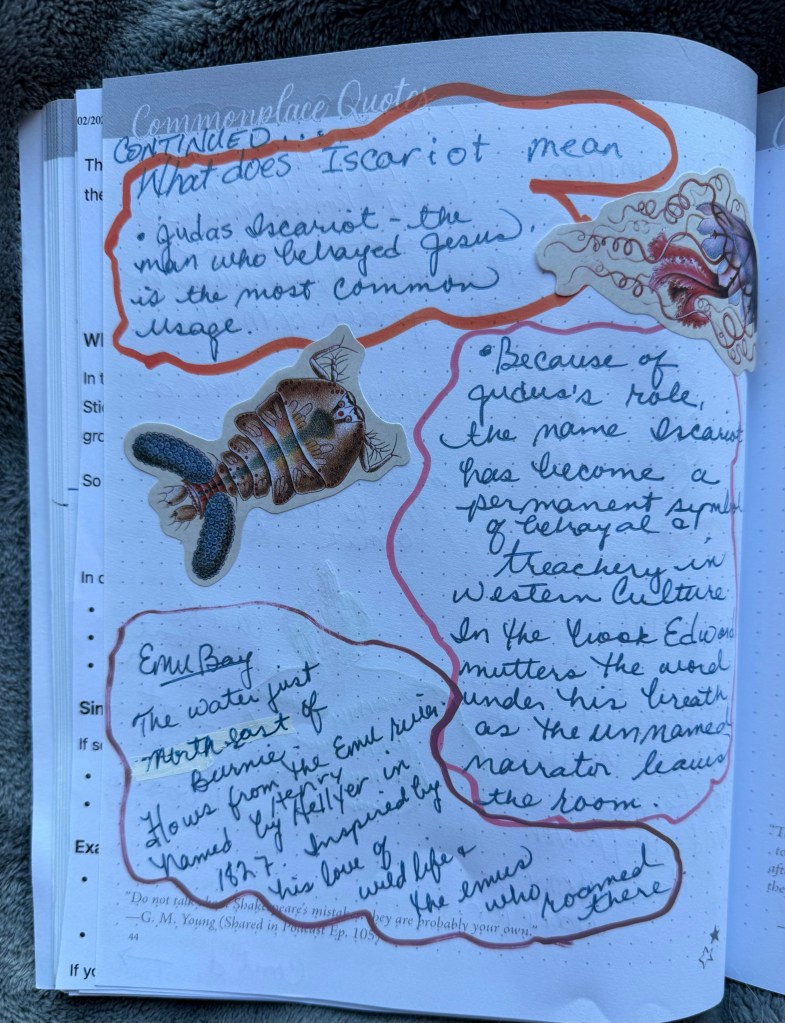 Commonplace Quotes
CONTINUED...
What does Iscariot mean
• Judas Iscariot - the
man who betrayed Jesus.
is the most common
usage.
• Because of
Judus's role,
the name Iscariot
has become a
permanent symbol
of betrayal &
treachery in
Western Culture
In the book Edward
mutters the word
under his breath
as the unnamed
narrator leaves
the room.
Emu Bay
The water just
north east of
Burnie.
Flows from the Emu river.
Henry
Named by Hellyer in
1827. Inspired by
his love of
wild life &
the emus
who roamed
there
"Do not talk about Shakespeare's mistakes: they are probably your own."
—G. M. Young (Shared in Podcast Ep. 105)
44
02/202
Th
the
In
Sti
gro
So
In c
Sin
If s
Exa
If yo